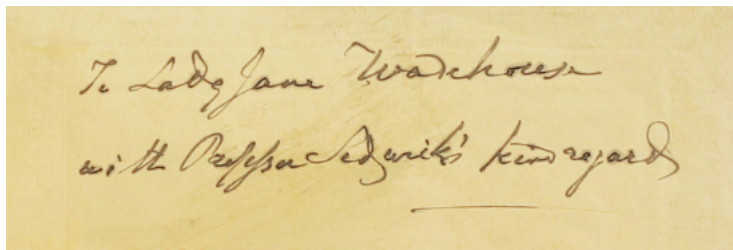 To Lady Jane Wodehouse
with Professor Sedgwick's kind regards